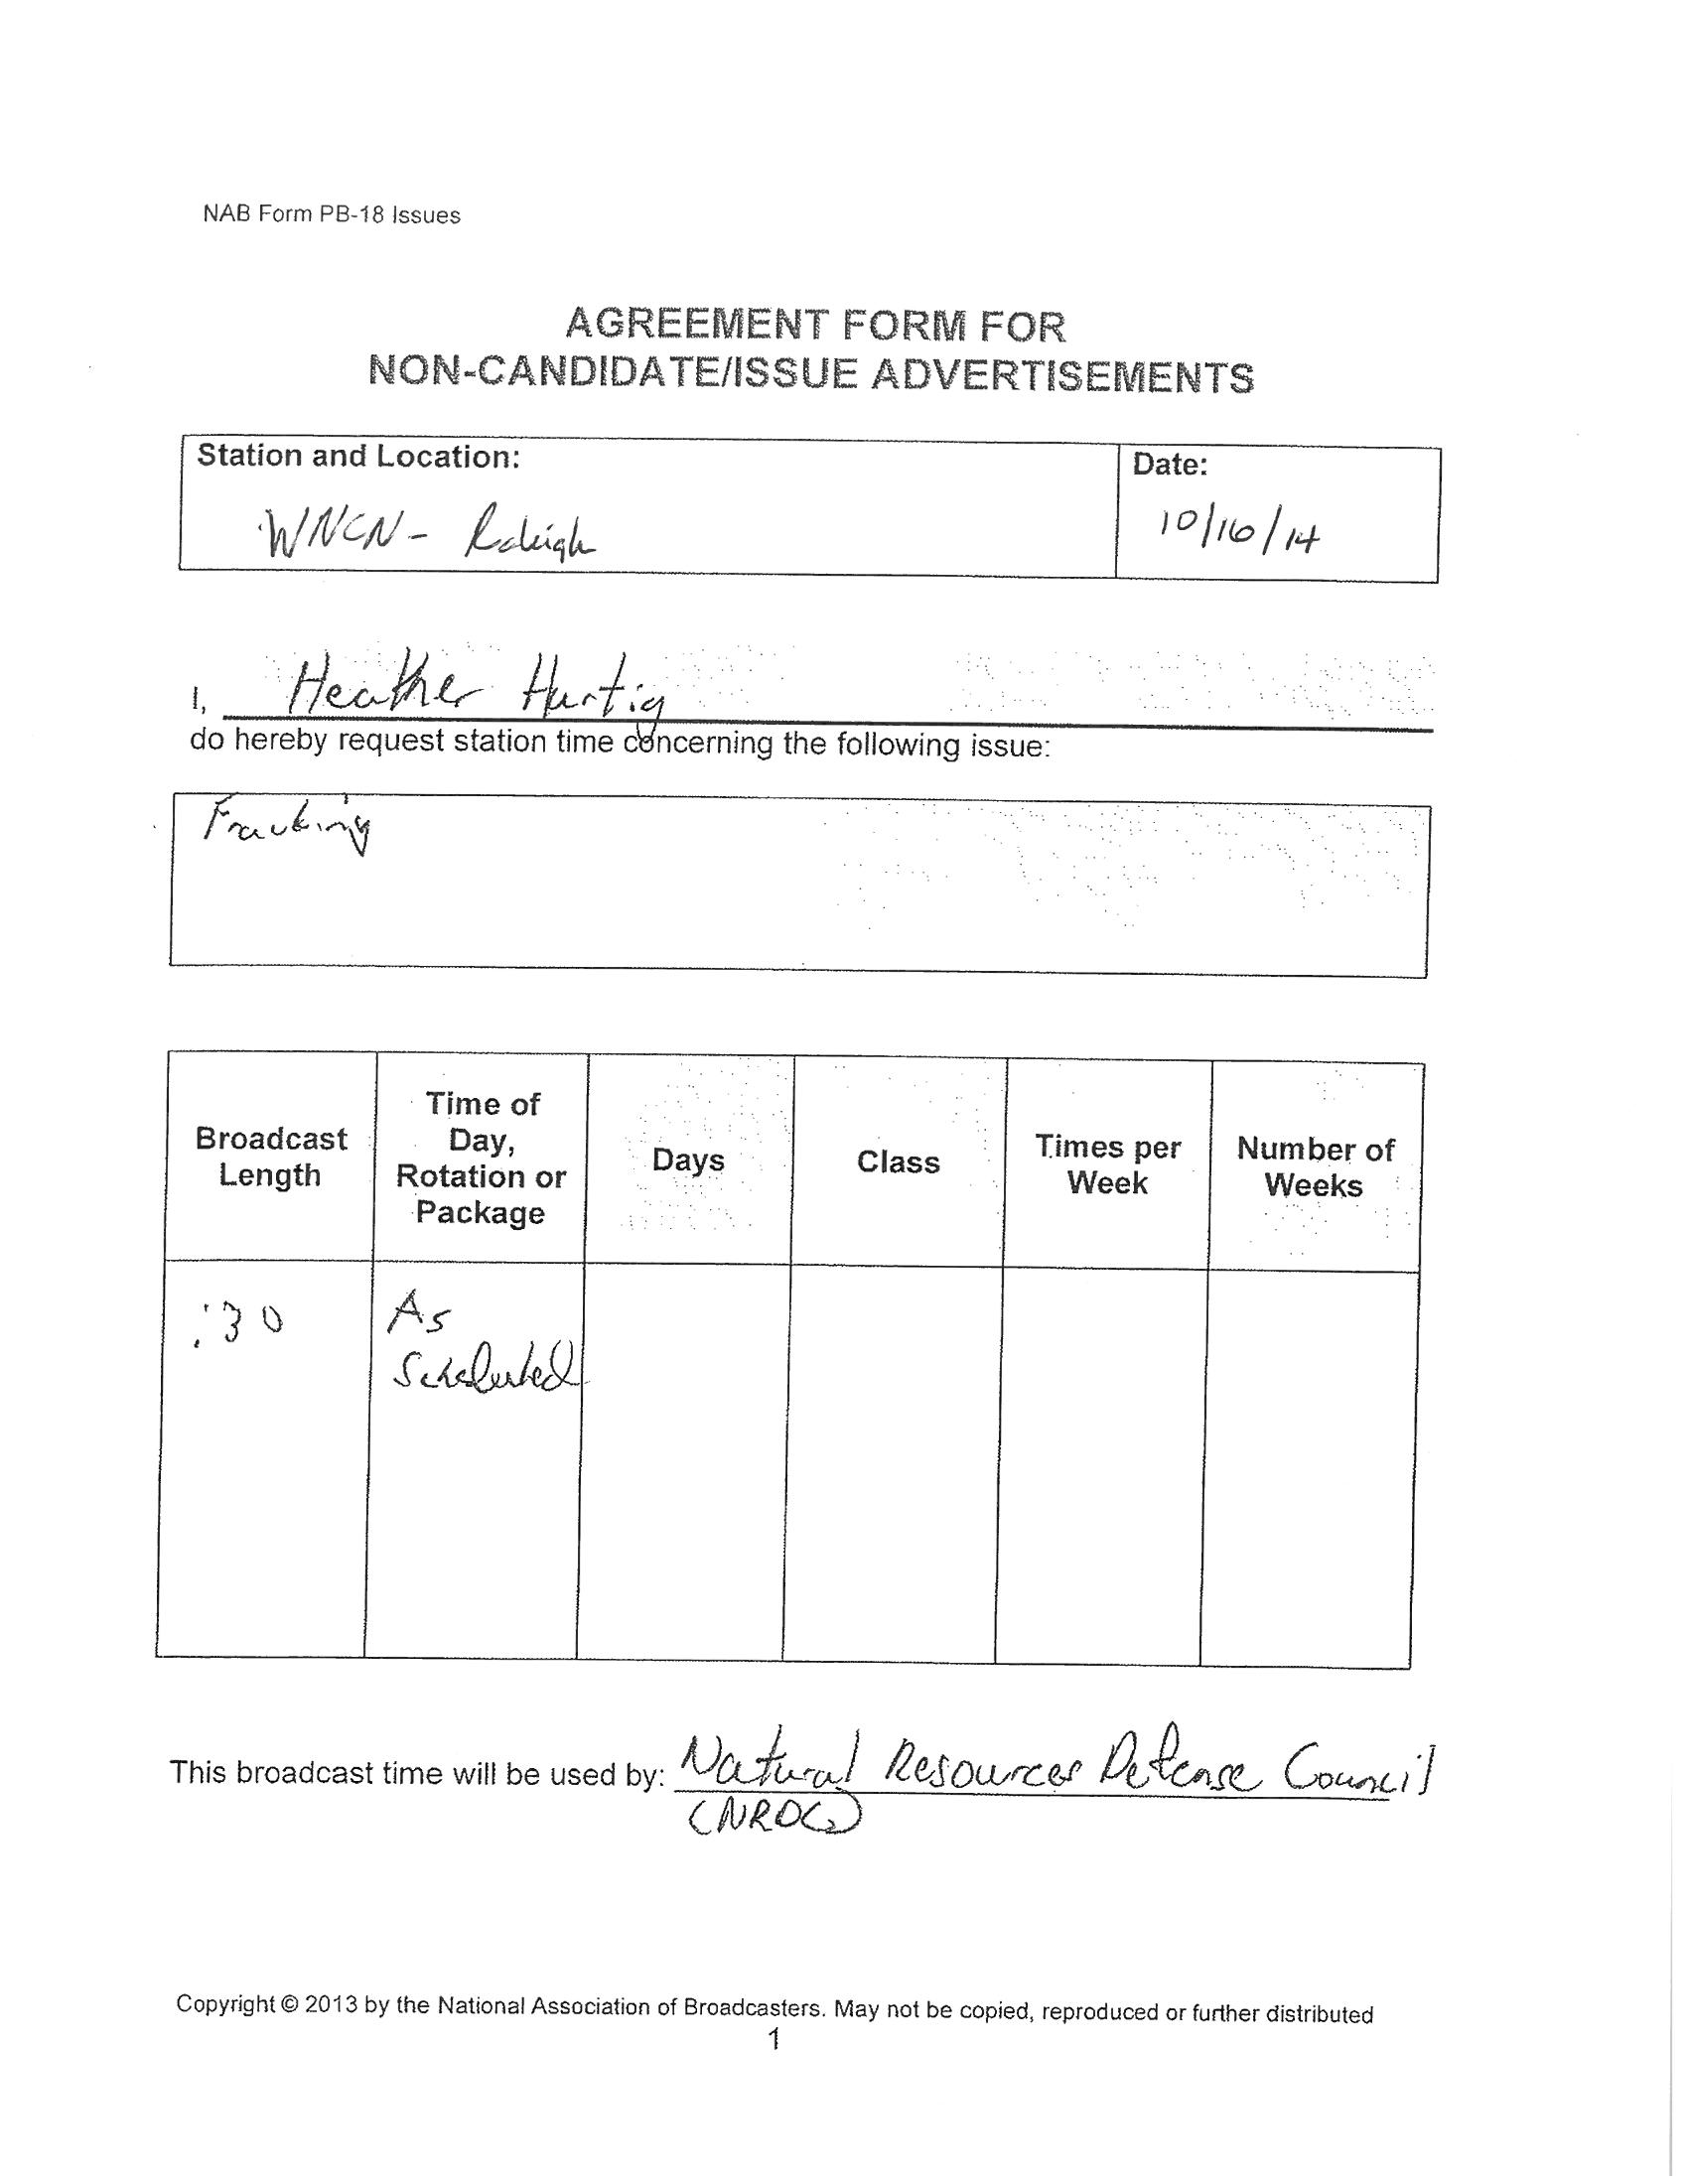 NAB Form PB-18 Issues
AGREEMENT FORM FOR
NON-CANDIDATE/ISSUE ADVERTISEMENTS
Station and Location:
Date:
WNCN - Raleigh
10/16/14
I, Heather Hurtig
do hereby request station time concerning the following issue:
Fracking
Broadcast
Length
Time of
Day,
Rotation or
Package
Days
Class
Times per
Week
Number of
Weeks
:30
As
Scheduled
This broadcast time will be used by: Natural Resources Defense Council
(NRDC)
Copyright © 2013 by the National Association of Broadcasters. May not be copied, reproduced or further distributed
1